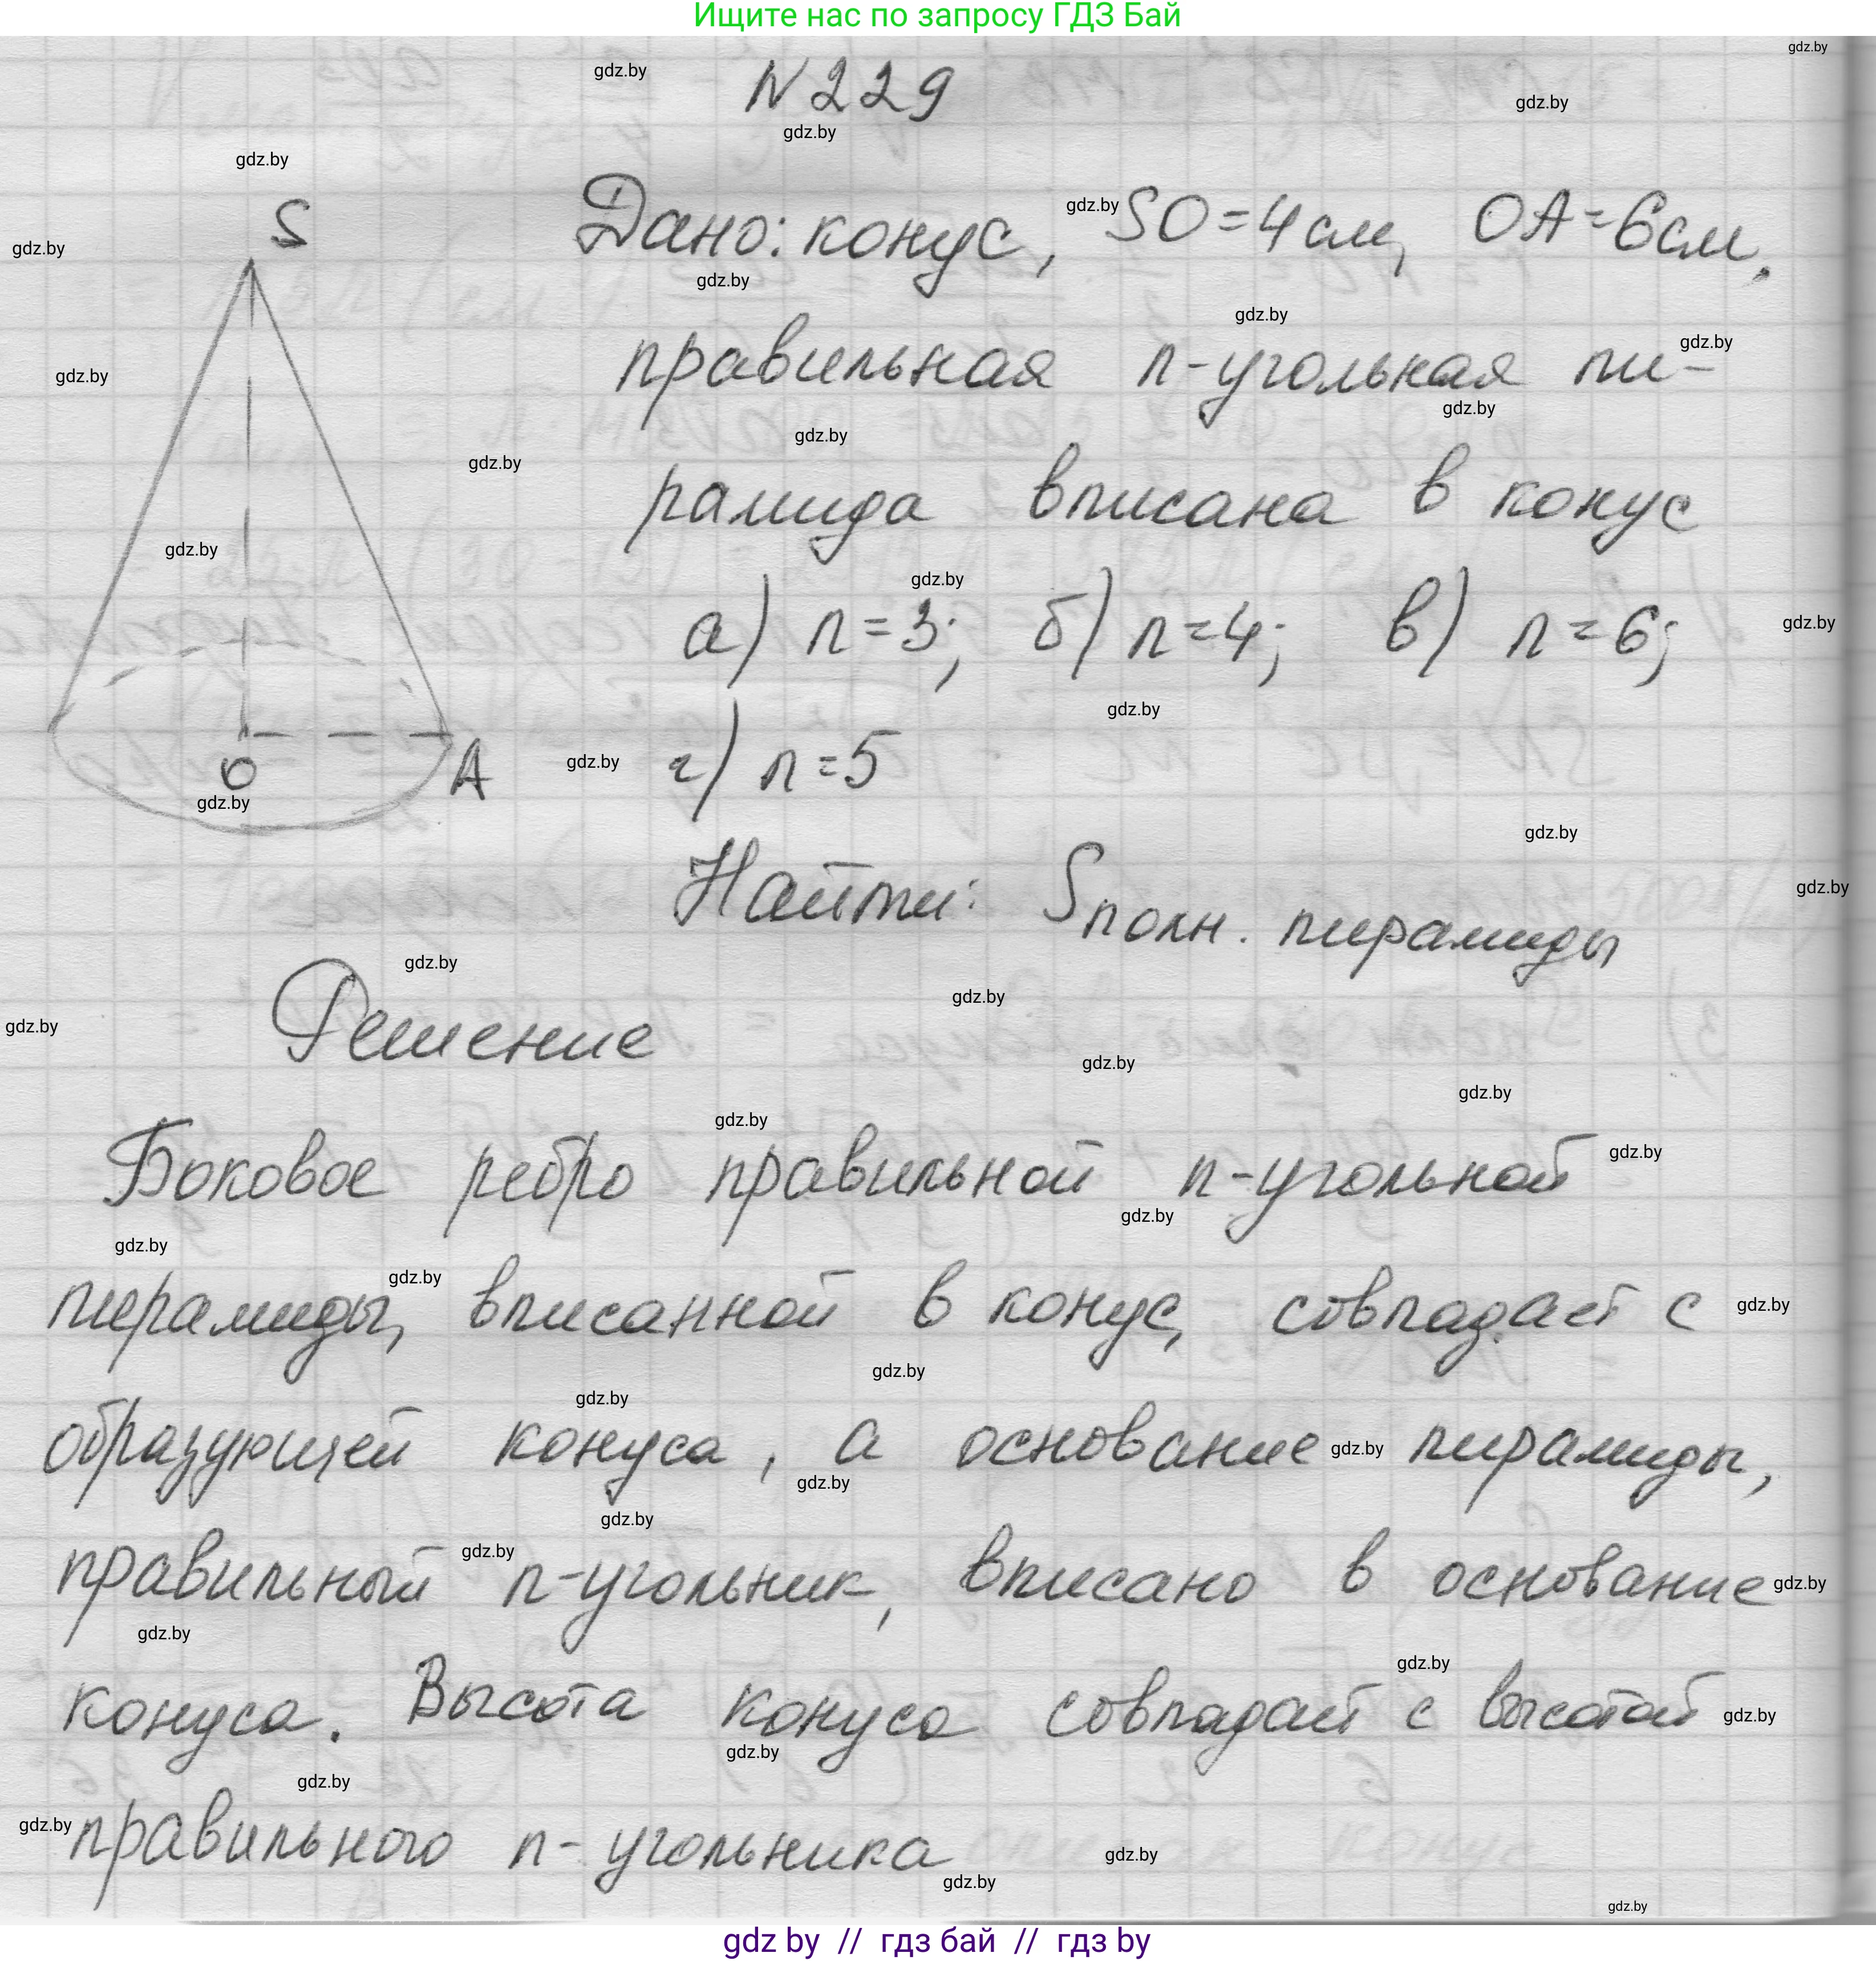 Ищите нас по запросу ГДЗ Бай
N229
S
Дано: конус, SO=4см, OA=6см,
правильная n-угольная пи-
рамида вписана в конус
а) n=3; б) n=4; в) n=6;
O A
г) n=5
Найти: Sполн. пирамиды
Решение
Боковое ребро правильной n-угольной
пирамиды, вписанной в конус, совпадает с
образующей конуса, а основание пирамиды,
правильный n-угольник, вписано в основание
конуса. Высота конуса совпадает с высотой
правильного n-угольника
gdz by // гдз бай // гдз by